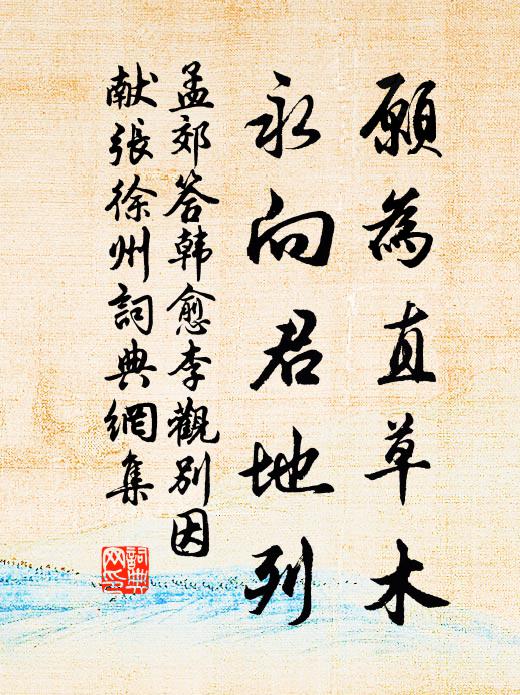 願為直草木
永向君地列
孟郊答韓愈李觀別因
献張徐州詞典網集
詞典
网㊞